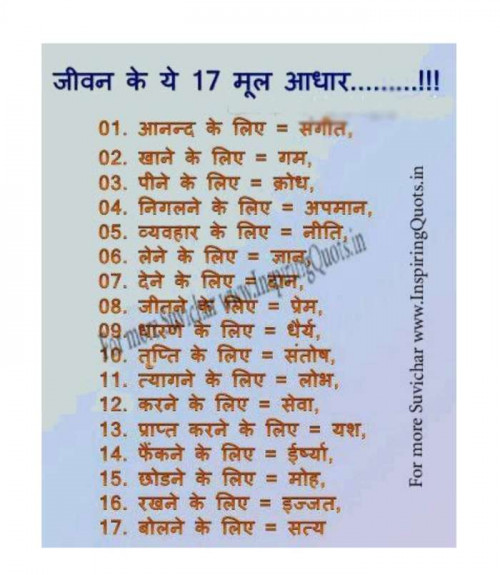 जीवन के ये 17 मूल आधार.........!!!
01. आनन्द के लिए = संगीत,
02. खाने के लिए = गम,
03. पीने के लिए = क्रोध,
04. निगलने के लिए = अपमान,
05. व्यवहार के लिए = नीति,
06. लेने के लिए = ज्ञान,
07. देने के लिए = दान,
08. जीतने के लिए = प्रेम,
09. धारणे के लिए = धैर्य,
10. तृप्ति के लिए = संतोष,
11. त्यागने के लिए = लोभ,
12. करने के लिए = सेवा,
13. प्राप्त करने के लिए = यश,
14. फैंकने के लिए = ईर्ष्या,
15. छोडने के लिए = मोह,
16. रखने के लिए = इज्जत,
17. बोलने के लिए = सत्य
For more Suvichar www.InspiringQuots.in
For more Suvichar www.InspiringQuots.in